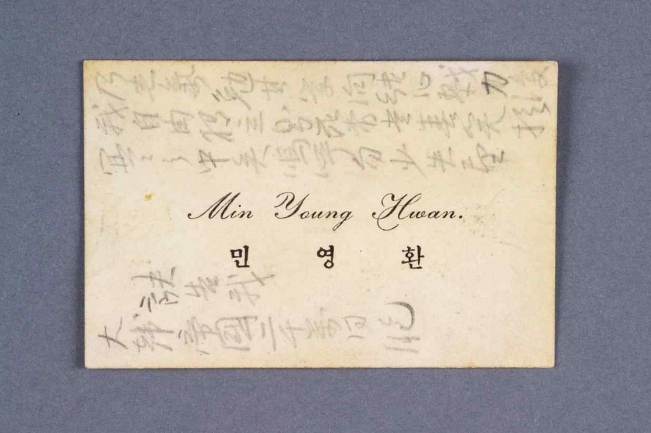 乃志氣勉其學問結心戮力復
我自由獨立則死者當喜笑於
冥々之中矣嗚呼勿少失望
Min Young Hwan.
민 영 환
訣告我
大韓帝國二千萬同胞